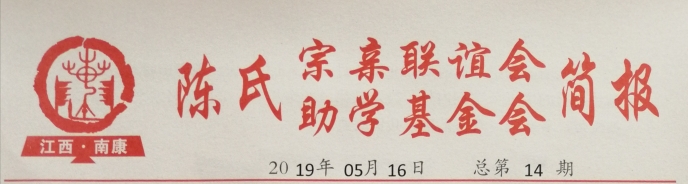 陈氏宗亲联谊会
助学基金会简报
江西·南康
2019年05月16日 总第14期